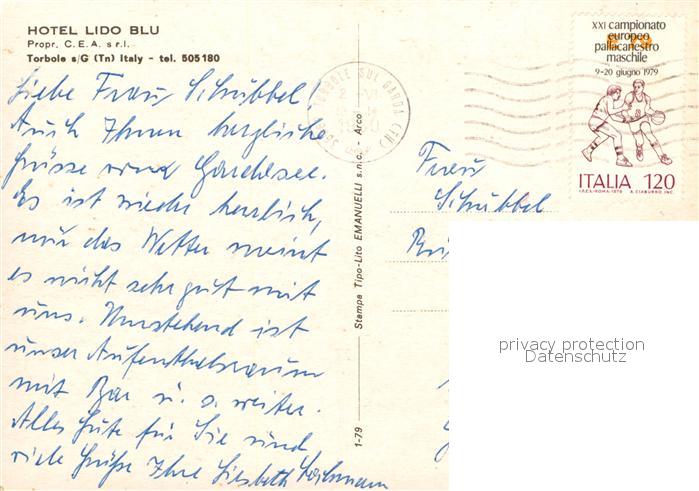 HOTEL LIDO BLU
Propr. C.E.A. s r l.
Torbole s/G (Tn) Italy - tel. 505180
Liebe Frau Schübbel!
Auch Ihnen herzliche
Grüsse vom Gardasee.
Es ist wieder herrlich,
nur das Wetter meint
es nicht sehr gut mit
uns. Umstehend ist
unser Aufenthaltsraum
mit Bar u. s. weiter.
Alles Gute für Sie und
viele Grüße Ihre Liesbeth
Stampa Tipo-Lito EMANUELLI s.n.c. - Arco
1-79
TORBOLE SUL GARDA (TN)
XXI campionato
europeo
pallacanestro
maschile
9-20 giugno 1979
ITALIA 120
I.P.Z.S.-ROMA-1979 A. CIABURRO INC.
Frau
Schübbel
privacy protection
Datenschutz